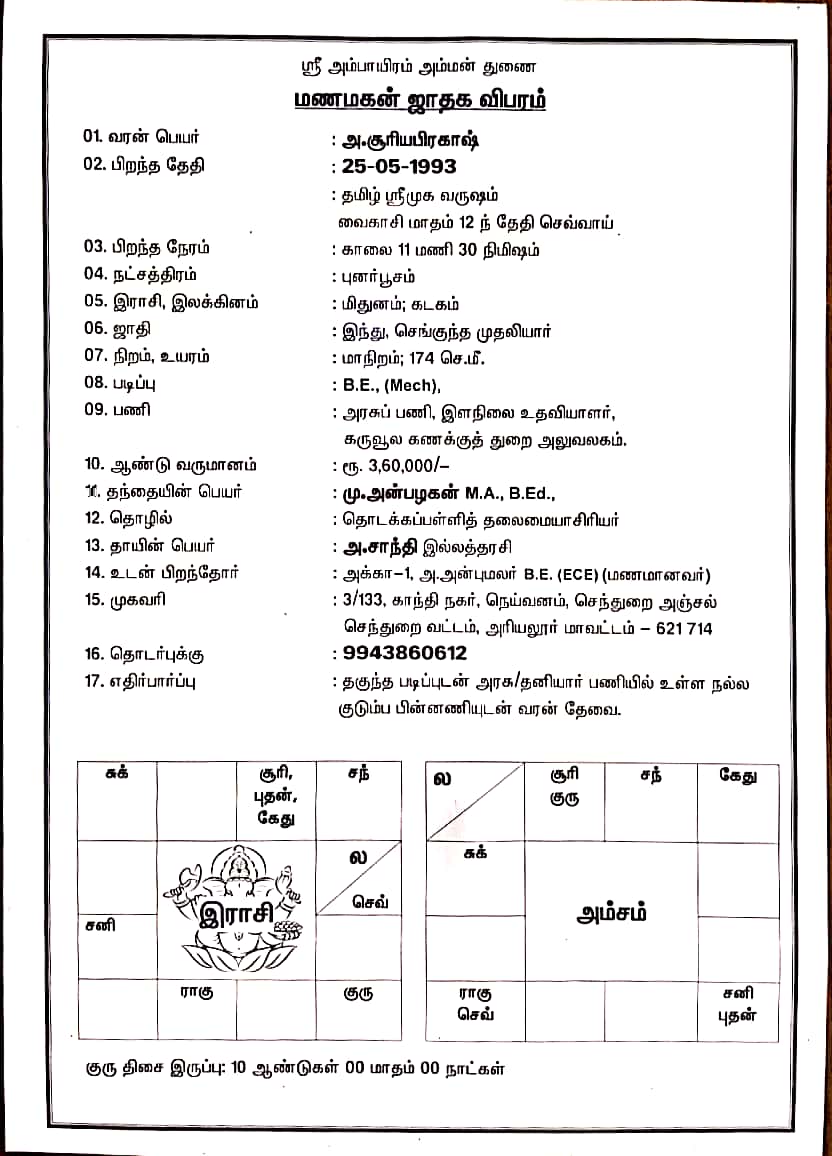 ஸ்ரீ அம்பாயிரம் அம்மன் துணை
மணமகன் ஜாதக விபரம்
01. வரன் பெயர் : அ.சூரியபிரகாஷ்
02. பிறந்த தேதி : 25-05-1993
: தமிழ் ஸ்ரீமுக வருஷம்
வைகாசி மாதம் 12 ந் தேதி செவ்வாய்
03. பிறந்த நேரம் : காலை 11 மணி 30 நிமிஷம்
04. நட்சத்திரம் : புனர்பூசம்
05. இராசி, இலக்கினம் : மிதுனம்; கடகம்
06. ஜாதி : இந்து, செங்குந்த முதலியார்
07. நிறம், உயரம் : மாநிறம்; 174 செ.மீ.
08. படிப்பு : B.E., (Mech),
09. பணி : அரசுப் பணி, இளநிலை உதவியாளர்,
கருவூல கணக்குத் துறை அலுவலகம்.
10. ஆண்டு வருமானம் : ரூ. 3,60,000/–
11. தந்தையின் பெயர் : மு.அன்பழகன் M.A., B.Ed.,
12. தொழில் : தொடக்கப்பள்ளித் தலைமையாசிரியர்
13. தாயின் பெயர் : அ.சாந்தி இல்லத்தரசி
14. உடன் பிறந்தோர் : அக்கா–1, அ.அன்புமலர் B.E. (ECE) (மணமானவர்)
15. முகவரி : 3/133, காந்தி நகர், நெய்வனம், செந்துறை அஞ்சல்
செந்துறை வட்டம், அரியலூர் மாவட்டம் – 621 714
16. தொடர்புக்கு : 9943860612
17. எதிர்பார்ப்பு : தகுந்த படிப்புடன் அரசு/தனியார் பணியில் உள்ள நல்ல
குடும்ப பின்னணியுடன் வரன் தேவை.
சுக் சூரி, சந்
புதன்,
கேது
ல
செவ்
இராசி
சனி
ராகு குரு
ல சூரி சந் கேது
குரு
சுக்
அம்சம்
ராகு சனி
செவ் புதன்
குரு திசை இருப்பு: 10 ஆண்டுகள் 00 மாதம் 00 நாட்கள்